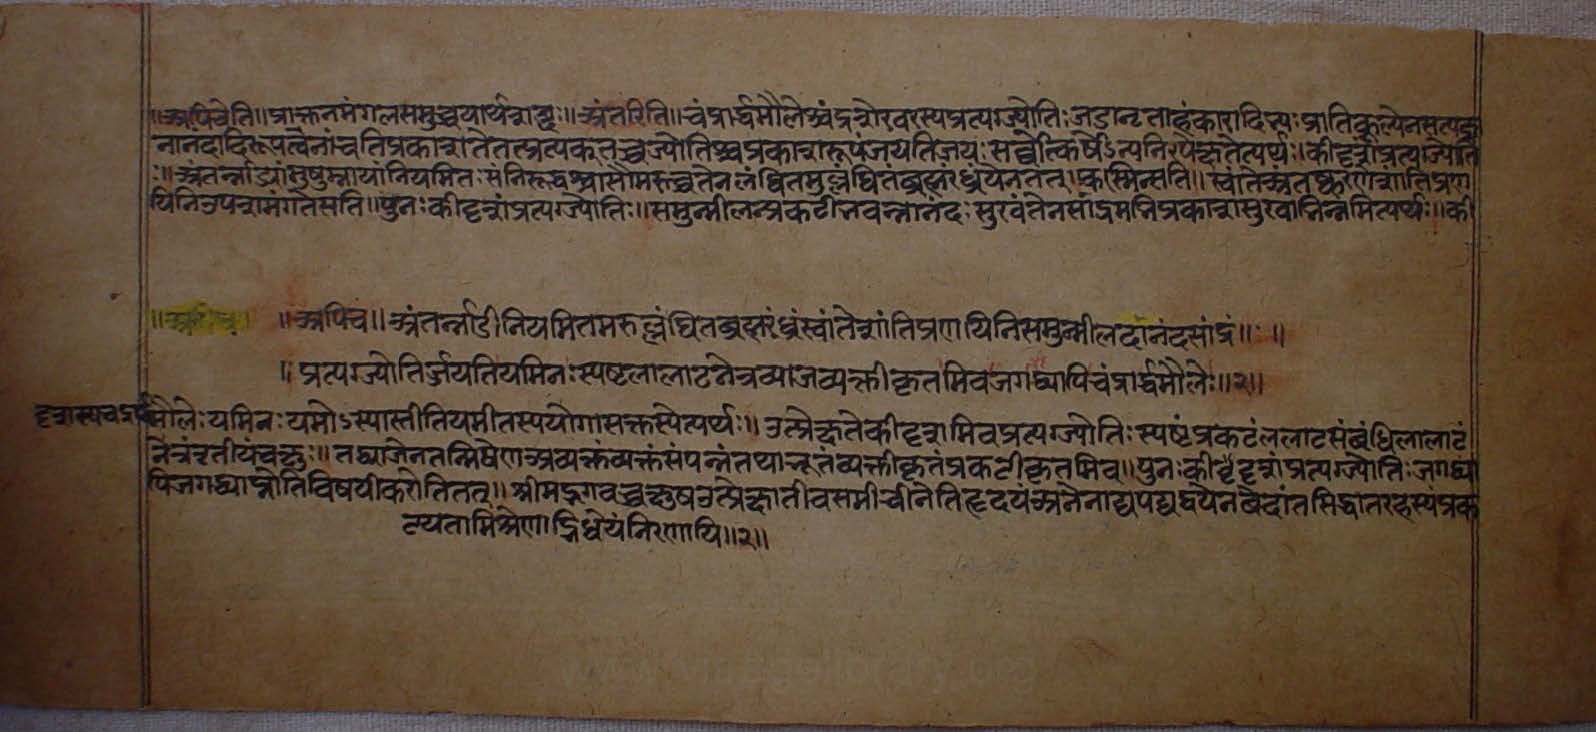 ॥अपिचेति॥प्राक्तनमंगलसमुच्चयार्थश्चशब्दः॥अंतरिति॥चंद्रार्द्धमौलेश्चंद्रशेखरस्यप्रत्यग्ज्योतिःजडानृताहंकारादिभ्यःप्रातिकूल्येनसत्यज्ञा
नानंदादिरूपत्वेनांचतिप्रकाशतेतत्प्रत्यक्तच्चज्योतिश्चप्रकाशरूपंजयतिजयःसर्वोत्कर्षेऽन्यनिरपेक्षतेत्यर्थः।कीदृशंप्रत्यग्ज्योति
ः॥अंतर्न्नाड्यांसुषुम्नायांनियमितःसंनिरुद्धश्चासौमरुच्चतेनलंघितमुल्लंघितंब्रह्मरंध्रंयेनतत्।कस्मिन्सति॥स्वांतेअंतष्करणेशांतिप्रण
यिनिउपशमंगतेसति॥पुनःकीदृशंप्रत्यग्ज्योतिः॥समुन्मीलन्प्रकटीभवन्नानंदःसुखंतेनसांद्रमभिप्रकाशसुखाभिन्नमित्यर्थः॥की
॥अपिच॥ ॥अपिच॥अंतर्न्नाडीनियमितमरुल्लंघितब्रह्मरंध्रंस्वांतेशांतिप्रणयिनिसमुन्मीलदानंदसांद्रं॥ः॥
॥प्रत्यग्ज्योतिर्ज्जयतियमिनःस्पष्टलालाटनेत्रव्याजव्यक्तीकृतमिवजगद्व्यापिचंद्रार्द्धमौलेः॥२॥
दृशस्यचंद्रार्द्धमौलेःयमिनःयमोऽस्यास्तीतियमीतस्ययोगासक्तस्येत्यर्थः॥उत्प्रेक्षतेकीदृशमिवप्रत्यग्ज्योतिःस्पष्टंप्रकटंललाटसंबंधिलालाटं
नेत्रंतृतीयंचक्षुः॥तद्व्याजेनतन्मिषेणअव्यक्तंव्यक्तंसंपन्नंतथाभूतंव्यक्तीकृतंप्रकटीकृतमिव॥पुनःकीदृशंप्रत्यग्ज्योतिःजगद्व्या
पिजगद्व्याप्नोतिविषयीकरोतितत्॥श्रीमद्भगवच्चक्षुषउत्प्रेक्षातीवसमीचीनेतिहृदयंअनेनाद्यपद्यद्वयेनवेदांतसिद्धांतरहस्यंप्रक
टयतामिश्रेणाभिधेयंनिरणायि॥२॥